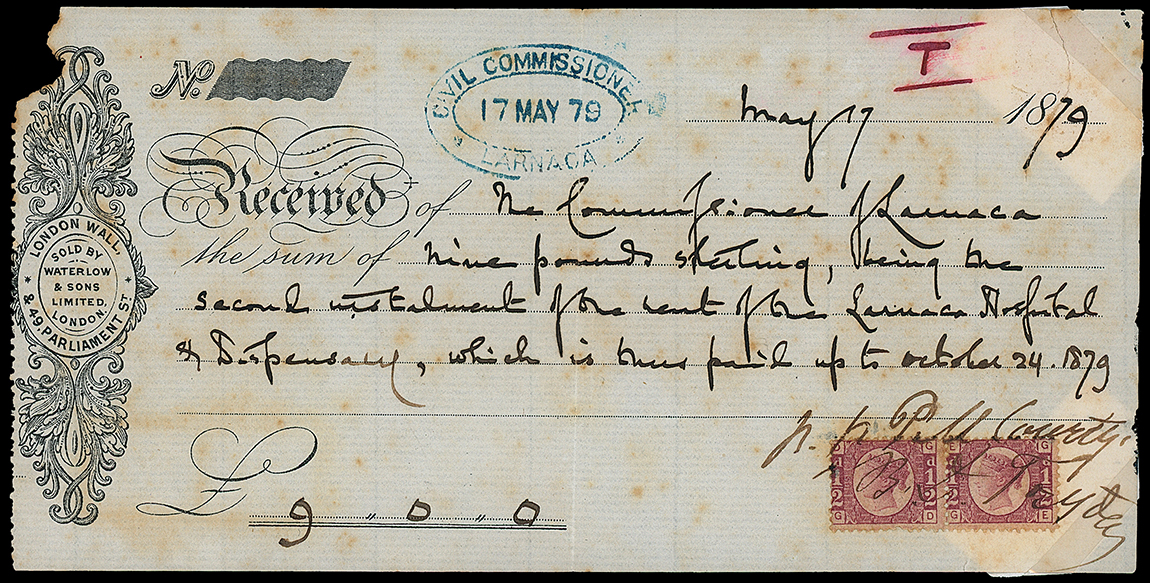 No.
CIVIL COMMISSIONER
17 MAY 79
LARNACA
T
May 17 1879
Received of The Commissioner of Larnaca
the sum of nine pounds sterling, being the
second instalment of the rent of the Larnaca Hospital
& Dispensary, which is thus paid up to October 24. 1879
LONDON WALL,
SOLD BY
WATERLOW
& SONS
LIMITED.
LONDON.
& 49, PARLIAMENT ST.
£ 9 " 0 " 0
p. p.
G D
G E